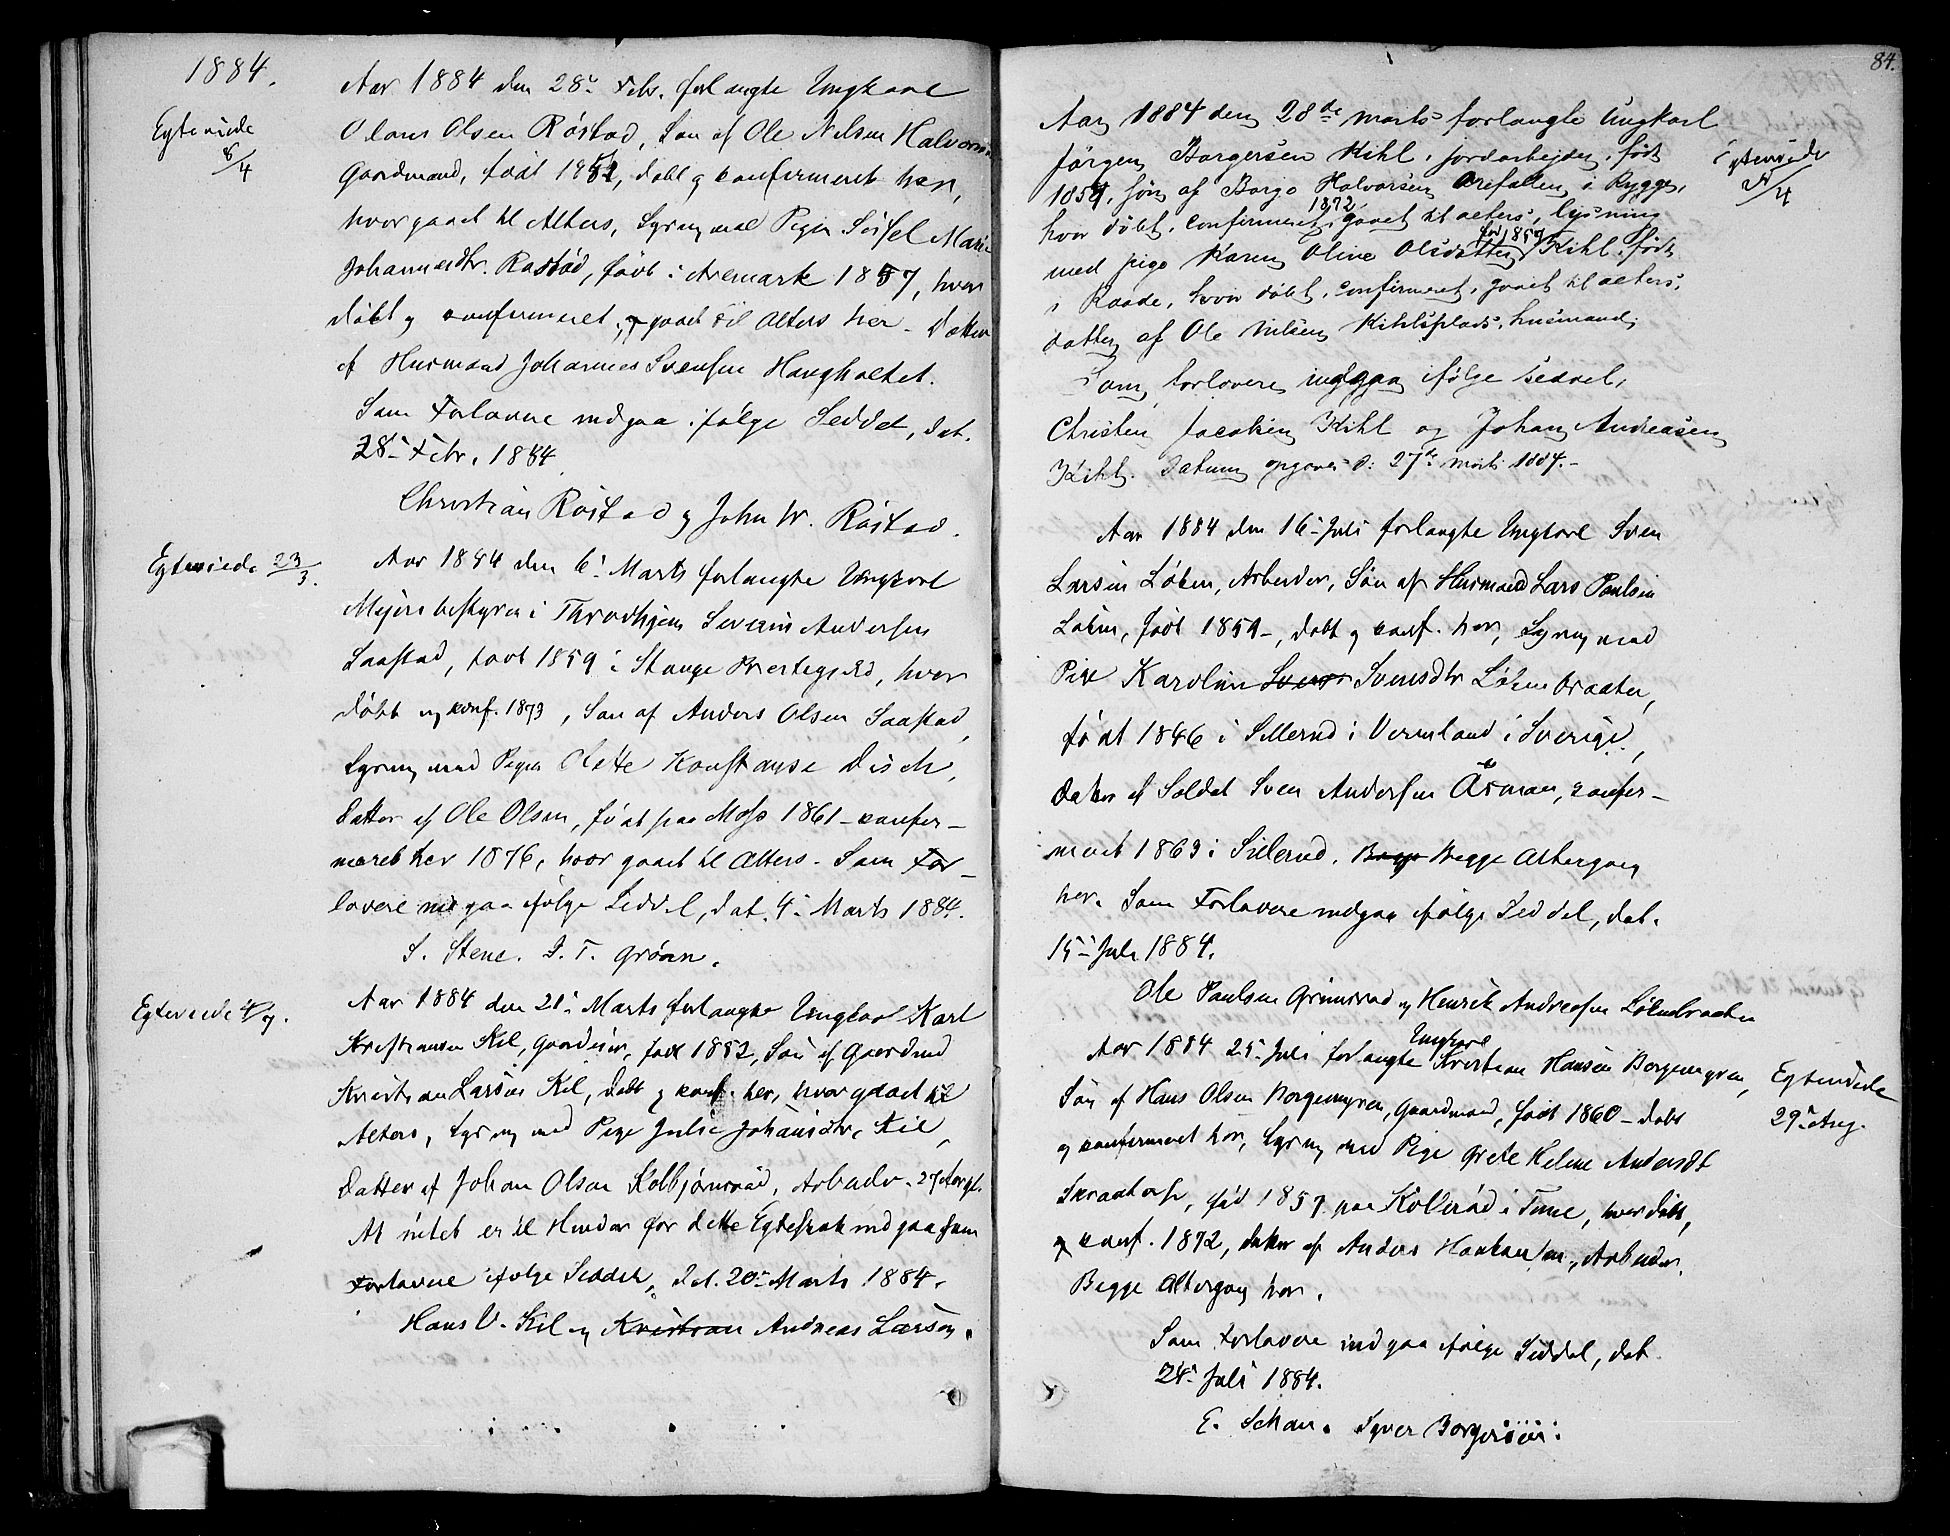 1884.
Egteviede
8/4
Aar 1884 den 28de Febr. forlangte Ungkarl
Olaus Olsen Röstad, Søn af Ole Nilsen Halvorsrö
Gaardmand, født 1851, døbt og konfirmeret her,
hvor gaaet til Alters, Lysning med Pigen Sissel Marie
Johannesdtr. Røstad, født i Aremark 1857, hvor
døbt og konfirmeret, gaaet til Alters her - Datter
af Husmand Johannes Svensen Haugholtet.
Som Forlovere indgaa ifølge Seddel, dat.
28de Febr. 1884
Christian Röstad og John W. Röstad.
Egteviede 23/3.
Aar 1884 den 6te Marts forlangte Ungkarl
Mejeribestyrer i Throdhjem Severin Andersen
Saastad, født 1859 i Stange Prestegjeld, hvor
døbt og konf. 1873, Søn af Anders Olsen Saastad,
Lysning med Pigen Olette Konstanse Disch,
Datter af Ole Olsen, født paa Moss 1861 - konfir-
meret her 1876, hvor gaaet til Alters. Som For-
lovere indgaa ifølge Seddel, dat. 4de Marts 1884.
S. Stene. J. T. Grøen.
Egteviede 4/7.
Aar 1884 den 21de Marts forlangte Ungkarl Karl
Kristiansen Kil, Gaardeier, født 1852, Søn af Gaardmd
Kristian Larsen Kil, døbt og konf. her, hvor gaaet til
Alters, Lysning med Pige Julie Johansdtr. Kil,
Datter af Johan Olsen Kolbjørnsrød, Arbeider. 27 Aar gl.
At intet er til Hinder for dette Egteskab indgaa som
Forlovere ifølge Seddel, Dat. 20de Marts 1884.
Hans O. Kil og Kristian Andreas Larsen.
84.
Aar 1884 den 28de marts forlangte Ungkarl
Jörgen Borgersen Kihl, jordarbejder, født
1859, søn af Borge Halvorsen Orefallen i Rygge,
1872
hvor døbt, confirmeret, gaaet til alters, lysning
fød 1859
med pige Karen Oline Olsdatter Kihl, født
i Raade, hvor døbt, confirmeret, gaaet til alters,
datter af Ole Nilsen Kihlsplads, husmand.
Som forlovere indgaa ifølge seddel,
Christen Jacobsen Kihl og Johan Andreasen
Kihl. Datum opgave d: 27de marts 1884.-
Egteviede
24/4
Aar 1884 den 16de Juli forlangte Ungkarl Sven
Larsen Løken, Arbeider, Søn af Husmand Lars Paulsen
Løken, født 1859-, døbt og konf. her, Lysning med
Pige Karoline Svens Svensdtr Løkenbraaten,
født 1846 i Sillerud i Vermland i Sverige,
Datter af Soldat Sven Andersen Åsman, konfir-
meret 1863 i Sillerud. Begge Begge Altergang
her. Som Forlovere indgaa ifølge Seddel, dat.
15de Juli 1884.
Ole Paulsen Grimsrud og Henrik Andresen Løkenbraaten
Ungkarl
Aar 1884 25de Juli forlangte Kristian Hansen Borgemyren,
Søn af Hans Olsen Borgemyren, Gaardmand, født 1860 - døbt
og konfirmeret her, Lysning med Pige Grete Helene Andersdt
Skraatorp, fød 1857 paa Kollerød i Tune, hvor døbt,
og konf. 1872, datter af Anders Haakonsen, Arbeider.
Begge Altergang her.
Som Forlovere indgaa ifølge Seddel, dat.
24de Juli 1884.
E. Schou. Syver Borgersen.
Egteviede
29de Aug.